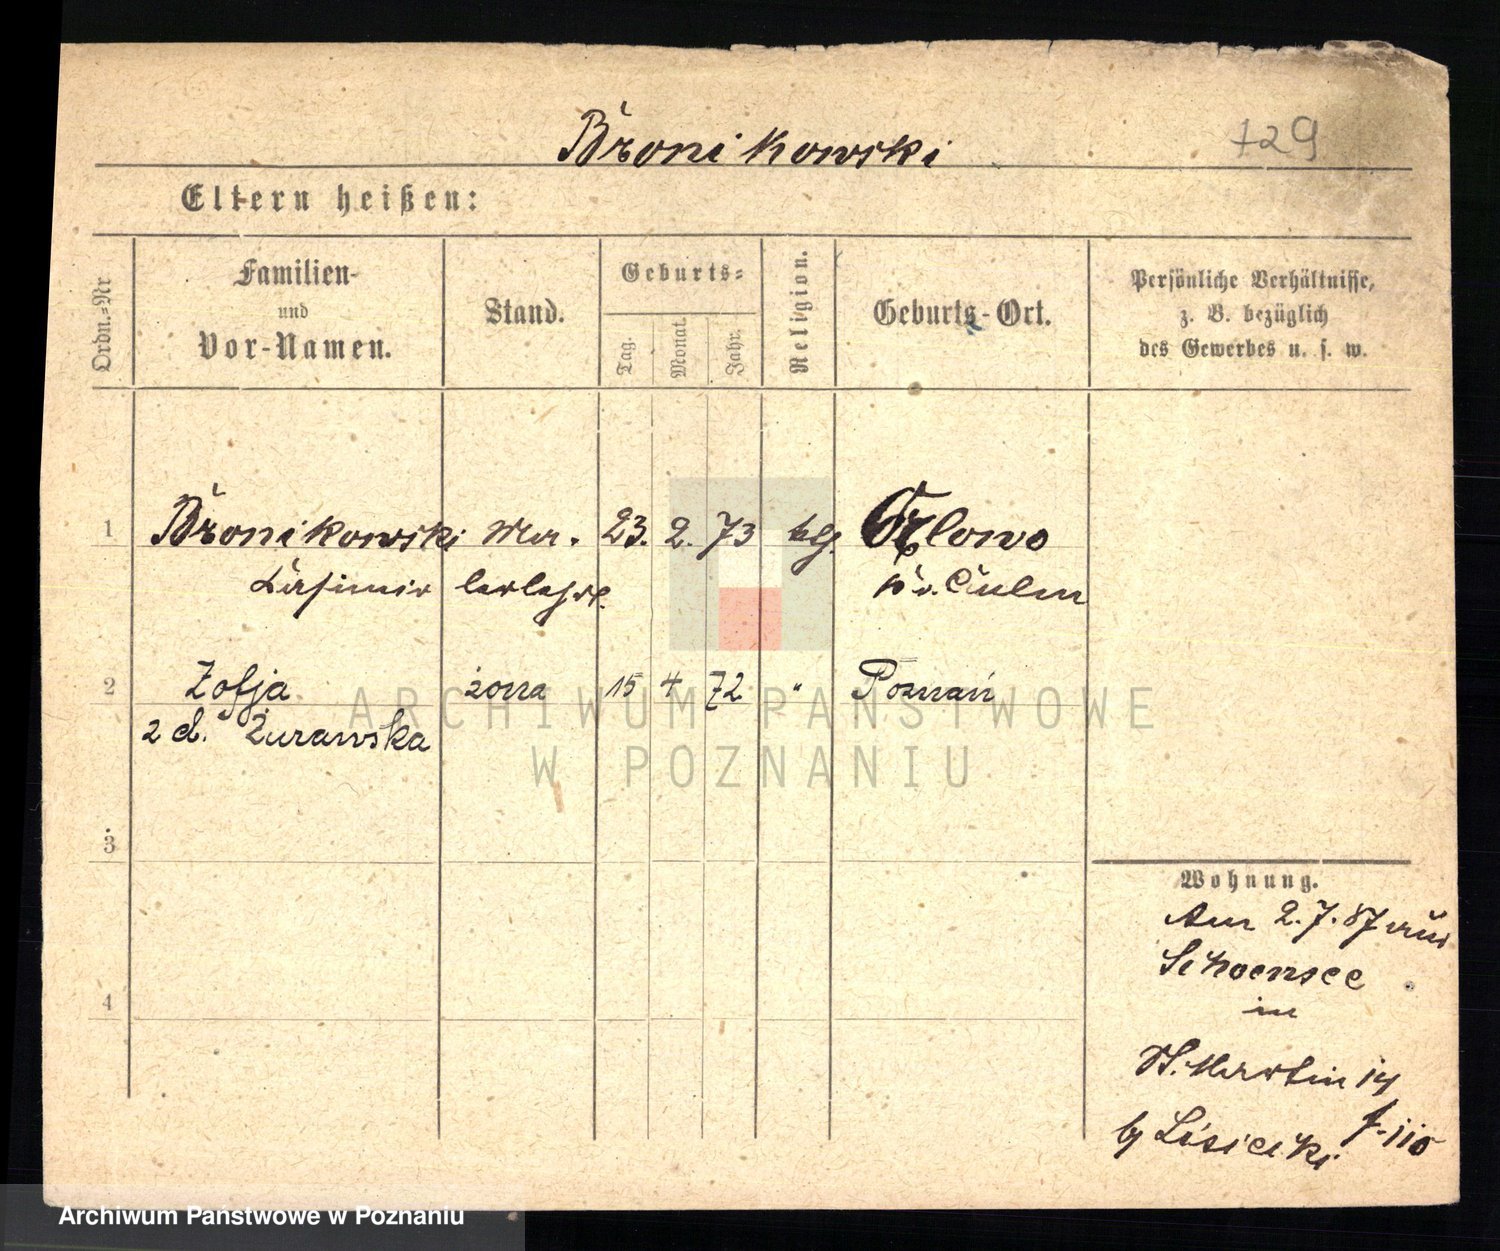 Bronikowski 129
Eltern heißen:
Ordn.-Nr
Familien-
und
Vor-Namen.
Stand.
Geburts-
Tag.
Monat.
Jahr.
Religion.
Geburts-Ort.
Persönliche Verhältnisse,
z. B. bezüglich
des Gewerbes u. s. w.
1 Bronikowski Ma- 23. 2. 73 klg. Orlowo
Kasimir lerlehrl. Kr. Culm
2 Zofja żona 15 4 72 " Poznań
z d. Żurawska
3
4
Wohnung.
Am 2.7.87 aus
Schoensee
in
St. Martin 14
by Lisiecki
ARCHIWUM PAŃSTWOWE
W POZNANIU
Archiwum Państwowe w Poznaniu